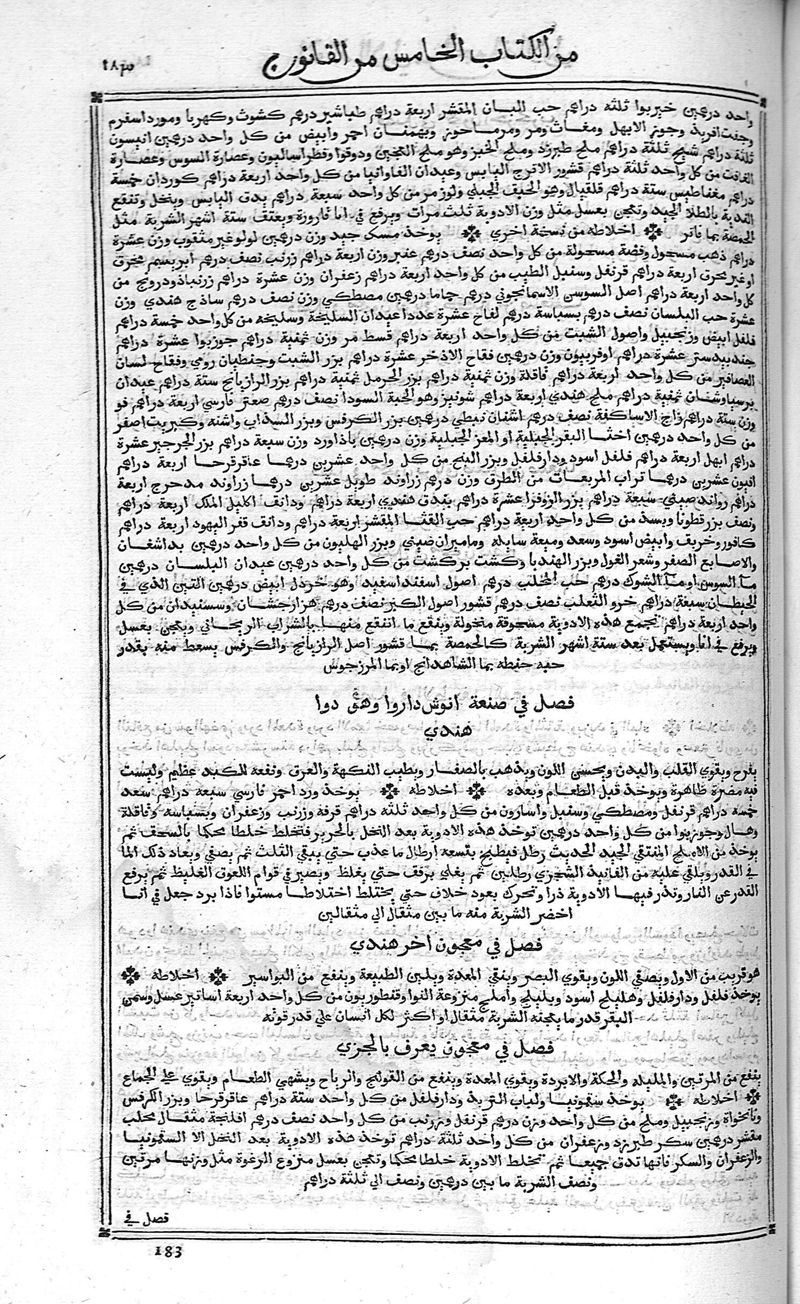 من الكتاب الخامس من القانون ج
١٨٣
واحد درهمين خيربوا ثلثه دراهم حب البان المقشر اربعة دراهم طباشير درهم كشوث وكهربا ومورداسفرم
وجفت افريد وجوز الابهل ومغاث ومر ومرماحوز وبهمنان احمر وابيض من كل واحد درهمين انيسون
ثلثة دراهم شيح ثلثة دراهم ملح طبرزد وملح الخبز وهو ملح العجين ودوقوا وفطراساليون وعصارة السوس وعصارة
الغافت من كل واحد ثلثة دراهم قشور الاترج اليابس وعيدان الفاوانيا من كل واحد اربعة دراهم كوردان خمسة
دراهم مغناطيس ستة دراهم قلقيال وهو الحبق الجبلي ولوز مر من كل واحد سبعة دراهم يدق اليابس وينخل وتنقع
القديه بالطلا الجيد وتعجن بعسل مثل وزن الادوية ثلث مرات ويرفع في انا قارورة ويعتق ستة اشهر الشربة مثل
الحمصة بما فاتر اخلاطه من نسخة اخري يوخذ مسك جيد وزن درهمين لولو غير مثقوب وزن عشرة
دراهم ذهب مسحول وفضة مسحولة من كل واحد نصف درهم عنبر وزن اربعة دراهم زرنب نصف درهم ابريسم محرق
او غير محرق اربعة دراهم قرنفل وسنبل الطيب من كل واحد اربعة دراهم زعفران وزن عشرة دراهم زرنباذ ودرونج من
كل واحد اربعة دراهم اصل السوسن الاسمانجوني درهم حاما درهمين مصطكي وزن نصف درهم ساذج هندي وزن
عشرة حب البلسان نصف درهم بسباسة درهم لفاح عشرة عددا عيدان السليخة وسليخه من كل واحد خمسة دراهم
فلفل ابيض وزنجبيل واصول الشبت من كل واحد اربعة دراهم قسط مر وزن ثمنية دراهم جوزبوا عشرة دراهم
جندبيدستر عشرة دراهم اوفربيون وزن درهمين فقاح الاذخر عشرة دراهم بزر الشبت وجنطيان رومي وفقاح لسان
العصافير من كل واحد اربعة دراهم قاقلة وزن ثمنية دراهم بزر الحرمل ثمنية دراهم بزر الرازيانج ستة دراهم عيدان
برسياوشان ثمنية دراهم ملح هندي اربعة دراهم شونيز وهو الحبة السودا نصف درهم صعتر فارسي اربعة دراهم فو
وزن ستة دراهم زاج الاساكفة نصف درهم اشنان نبطي درهمين بزر الكرفس وبزر السداب واشنه وكبريت اصفر
من كل واحد درهمين اخثا البقر الجبلية او المعز الجبلية وزن درهمين باذاورد وزن سبعة دراهم بزر الجرجير عشرة
دراهم ابهل اربعة دراهم فلفل اسود ودارفلفل وبزر البنج من كل واحد عشرين درهما عاقرقرحا اربعة دراهم
افيون عشرين درهما تراب المربعات من الطرق وزن درهم زراوند طويل عشرين درهما زراوند مدحرج اربعة
دراهم رواند صيني سبعة دراهم بزر الزوفرا عشرة دراهم بندق هندي اربعة دراهم ودانق اكليل الملك اربعة دراهم
ونصف بزر قطونا وبسد من كل واحد اربعة دراهم حب القثا المقشر اربعة دراهم ودانق قفر اليهود اربعة دراهم
كافور وخربق وابيض اسود وسعد وميعة سايله وماميران صيني وبزر الهليون من كل واحد درهمين بداشغان
والاصابع الصفر وشعر الغول وبزر الهندبا وكشت بركشت من كل واحد درهمين عيدان البلسان درهمين
ما السوس او ما الشوك درهم حب المحلب درهم اصول اسفنداسفيد وهو خردل ابيض درهمين التبن الذي في
الحيطان سبعة دراهم خرو الثعلب نصف درهم قشور اصول الكبر نصف درهم هزارجشان وسسنيدان من كل
واحد اربعة دراهم تجمع هذه الادوية مسحوقة منخولة وينقع ما انتفع منها بالشراب الريحاني ويعجن بعسل
ويرفع في انا ويستعمل بعد ستة اشهر الشربة كالحمصة بما قشور اصل الرازيانج والكرفس يسعط منه بقدر
حبه حنطه بما الشاهدانج او بما المرزجوش
فصل في صنعة انوش داروا وهي دوا
هندي
يفرح ويقوي القلب واليدن ويحسن اللون ويذهب بالصفار ويطيب النكهة والعرق ونفعه للكبد عظيم وليست
فيه مضرة ظاهرة ويوخذ قبل الطعام وبعده اخلاطه يوخذ ورد احمر فارسي سبعة دراهم سعد
خمسه دراهم قرنفل ومصطكي وسنبل واسارون من كل واحد ثلثه دراهم قرفه وزرنب وزعفران وبسباسه وقاقلة
وهال وجوزبوا من كل واحد درهمين توخذ هذه الادوية بعد النخل بالحرير فتخلط خلطا محكما بالسحق ثم
يوخذ من الاملج المنتقي الجيد الحديث رطل فيطبخ بتسعة ارطال ما عذب حتي يبقي الثلث ثم يصفي ويعاد ذلك الما
في القدر ويلقي عليه من الفانيذ الشجزي رطلين ثم يغلي برفق حتي يغلظ ويصير في قوام اللعوق الغليظ ثم يرفع
القدر عن النار وتذر فيها الادوية ذرا وتحرك بعود خلاف حتي يختلط اختلاطا مستوا فاذا برد جعل في انا
اخضر الشربة منه ما بين مثقال الي مثقالين
فصل في معجون اخر هندي
هو قريب من الاول ويصفي اللون ويقوي البصر وينقي المعدة ويلين الطبيعة وينفع من البواسير اخلاطه
يوخذ فلفل ودارفلفل وهليلج اسود وبليلج واملج منزوعة النوا وقنطوريون من كل واحد اربعة اساتير عسل وسمن
البقر قدر ما يعجنه الشربة مثقال او اكثر لكل انسان علي قدر قوته
فصل في معجون يعرف بالجزي
ينفع من المرتين والمليله والحكة والابردة ويقوي المعدة وينفع من القولنج والرياح ويشهي الطعام ويقوي علي الجماع
اخلاطه يوخذ سقمونيا ولباب التربد ودارفلفل من كل واحد ستة دراهم عاقرقرحا وبزر الكرفس
ونانخواة وزنجبيل وملح من كل واحد وزن درهم قرنفل وزرنب من كل واحد نصف درهم افلنجة مثقال محلب
مقشر درهمين سكر طبرزد وزعفران من كل واحد ثلثة دراهم توخذ هذه الادوية بعد النخل الا السقمونيا
والزعفران والسكر فانها تدق جميعا ثم تخلط الادوية خلطا محكما وتعجن بعسل منزوع الرغوة مثل وزنها مرتين
ونصف الشربة ما بين درهمين ونصف الي ثلثة دراهم
فصل في
183